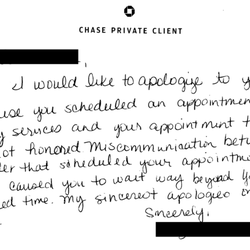 CHASE PRIVATE CLIENT
I would like to apologize to y
use you scheduled an appointmen
y services and your appoinment t
ot honored Miscommunication betw
der that scheduled your appointme
caused you to wait way beyond yo
ed time. My sincerest apologies on
Sincerely,